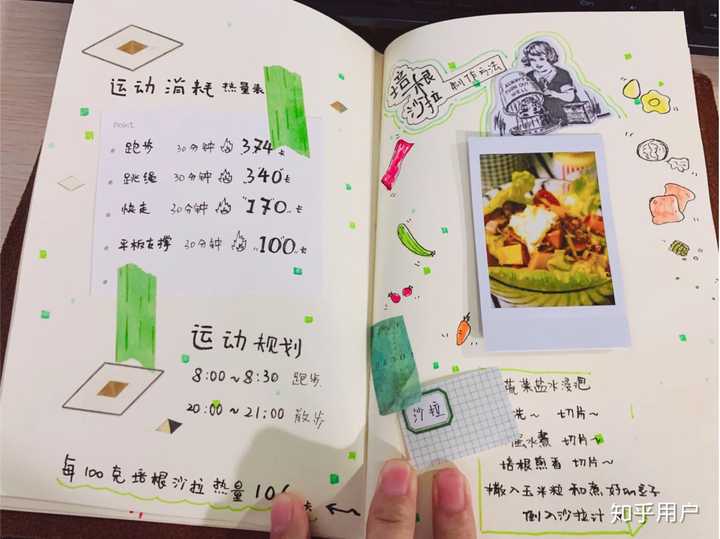 运动消耗 热量表
Point
跑步 30分钟 374卡
跳绳 30分钟 340卡
快走 30分钟 170卡
平板支撑 30分钟 100卡
运动规划
8:00~8:30 跑步
20:00~21:00 散步
每100克培根沙拉热量10
培根
沙拉
制作方法
沙拉
蔬菜盐水浸泡
洗~ 切片~
水煮 切片~
培根煎香 切片~
撒入玉米粒和煮好的豆子
倒入沙拉汁
知乎用户